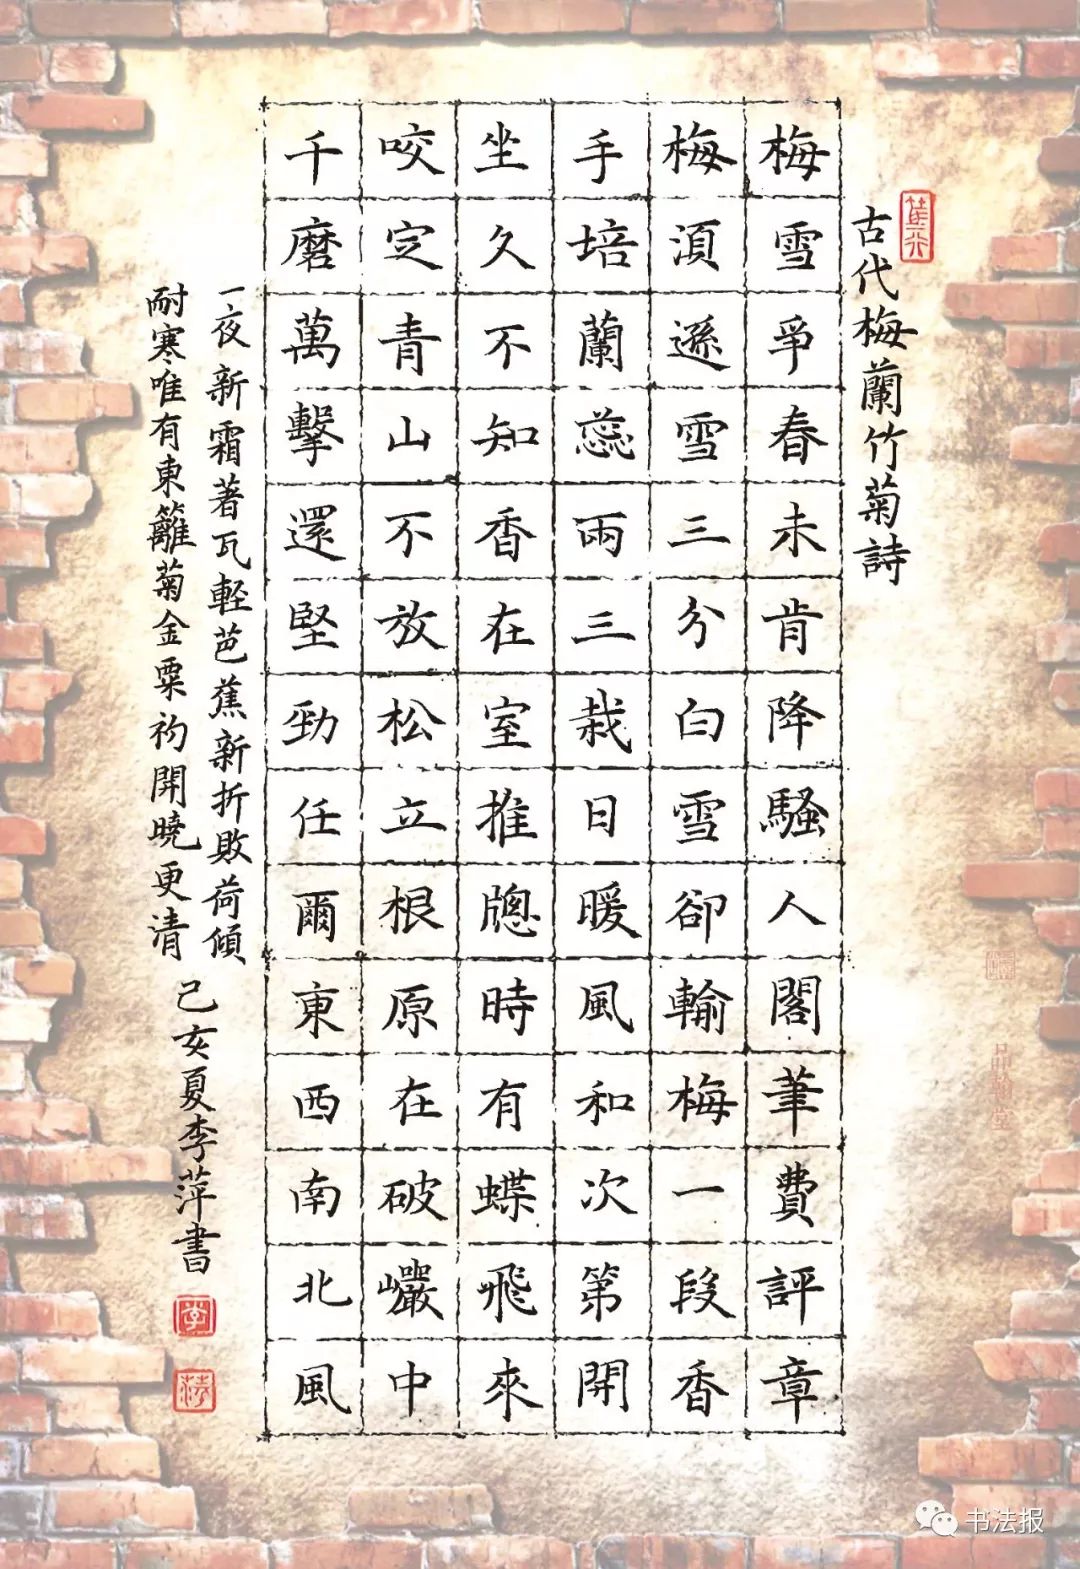 古代梅蘭竹菊詩
梅雪爭春未肯降騷人閣筆費評章
梅須遜雪三分白雪卻輸梅一段香
手培蘭蕊兩三栽日暖風和次第開
坐久不知香在室推牕時有蝶飛來
咬定青山不放松立根原在破巖中
千磨萬擊還堅勁任爾東西南北風
一夜新霜著瓦輕芭蕉新折敗荷傾
耐寒唯有東籬菊金粟初開曉更清
己亥夏李萍書
李
书法报